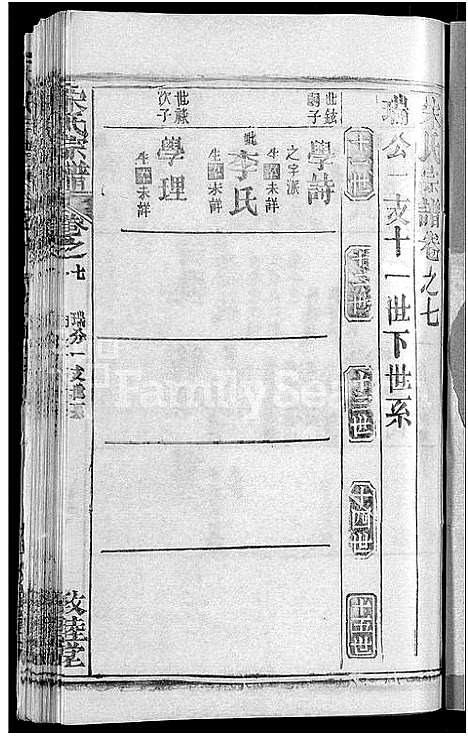 朱氏宗譜卷之七
瑞公一支十一世下世系
十一世
十二世
十三世
十四世
十五世
世鉉嗣子
學詩
之字派
生卒未詳
妣李氏
生卒未詳
世祿次子
學理
生卒未詳
朱氏宗譜
卷之七
瑞公一支世系
敦睦堂
FamilySearch